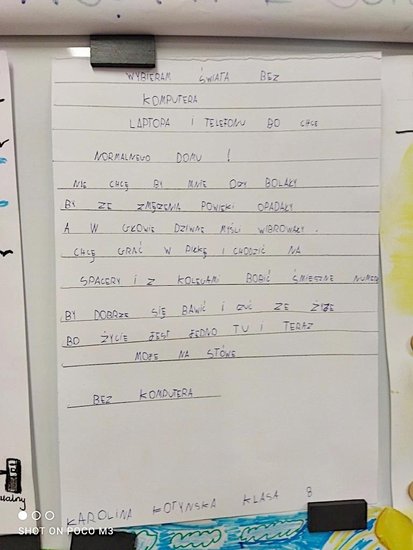 WYBIERAM ŚWIATA BEZ
KOMPUTERA
LAPTOPA I TELEFONU BO CHCE
NORMALNEGO DOMU !
NIE CHCĘ BY MNIE OCZY BOLAŁY
BY ZE ZMĘCZENIA POWIEKI OPADAŁY
A W GŁOWIE DZIWNE MYŚLI WIBROWAŁY.
CHCĘ GRAĆ W PIŁKĘ I CHODZIĆ NA
SPACERY I Z KOLEGAMI ROBIĆ ŚMIESZNE NUMERY
BY DOBRZE SIĘ BAWIĆ I CZUĆ ŻE ŻYJĘ
BO ŻYCIE JEST JEDNO TU I TERAZ
MOŻE NA STÓWĘ
BEZ KOMPUTERA
KAROLINA KLASA 8
SHOT ON POCO M3